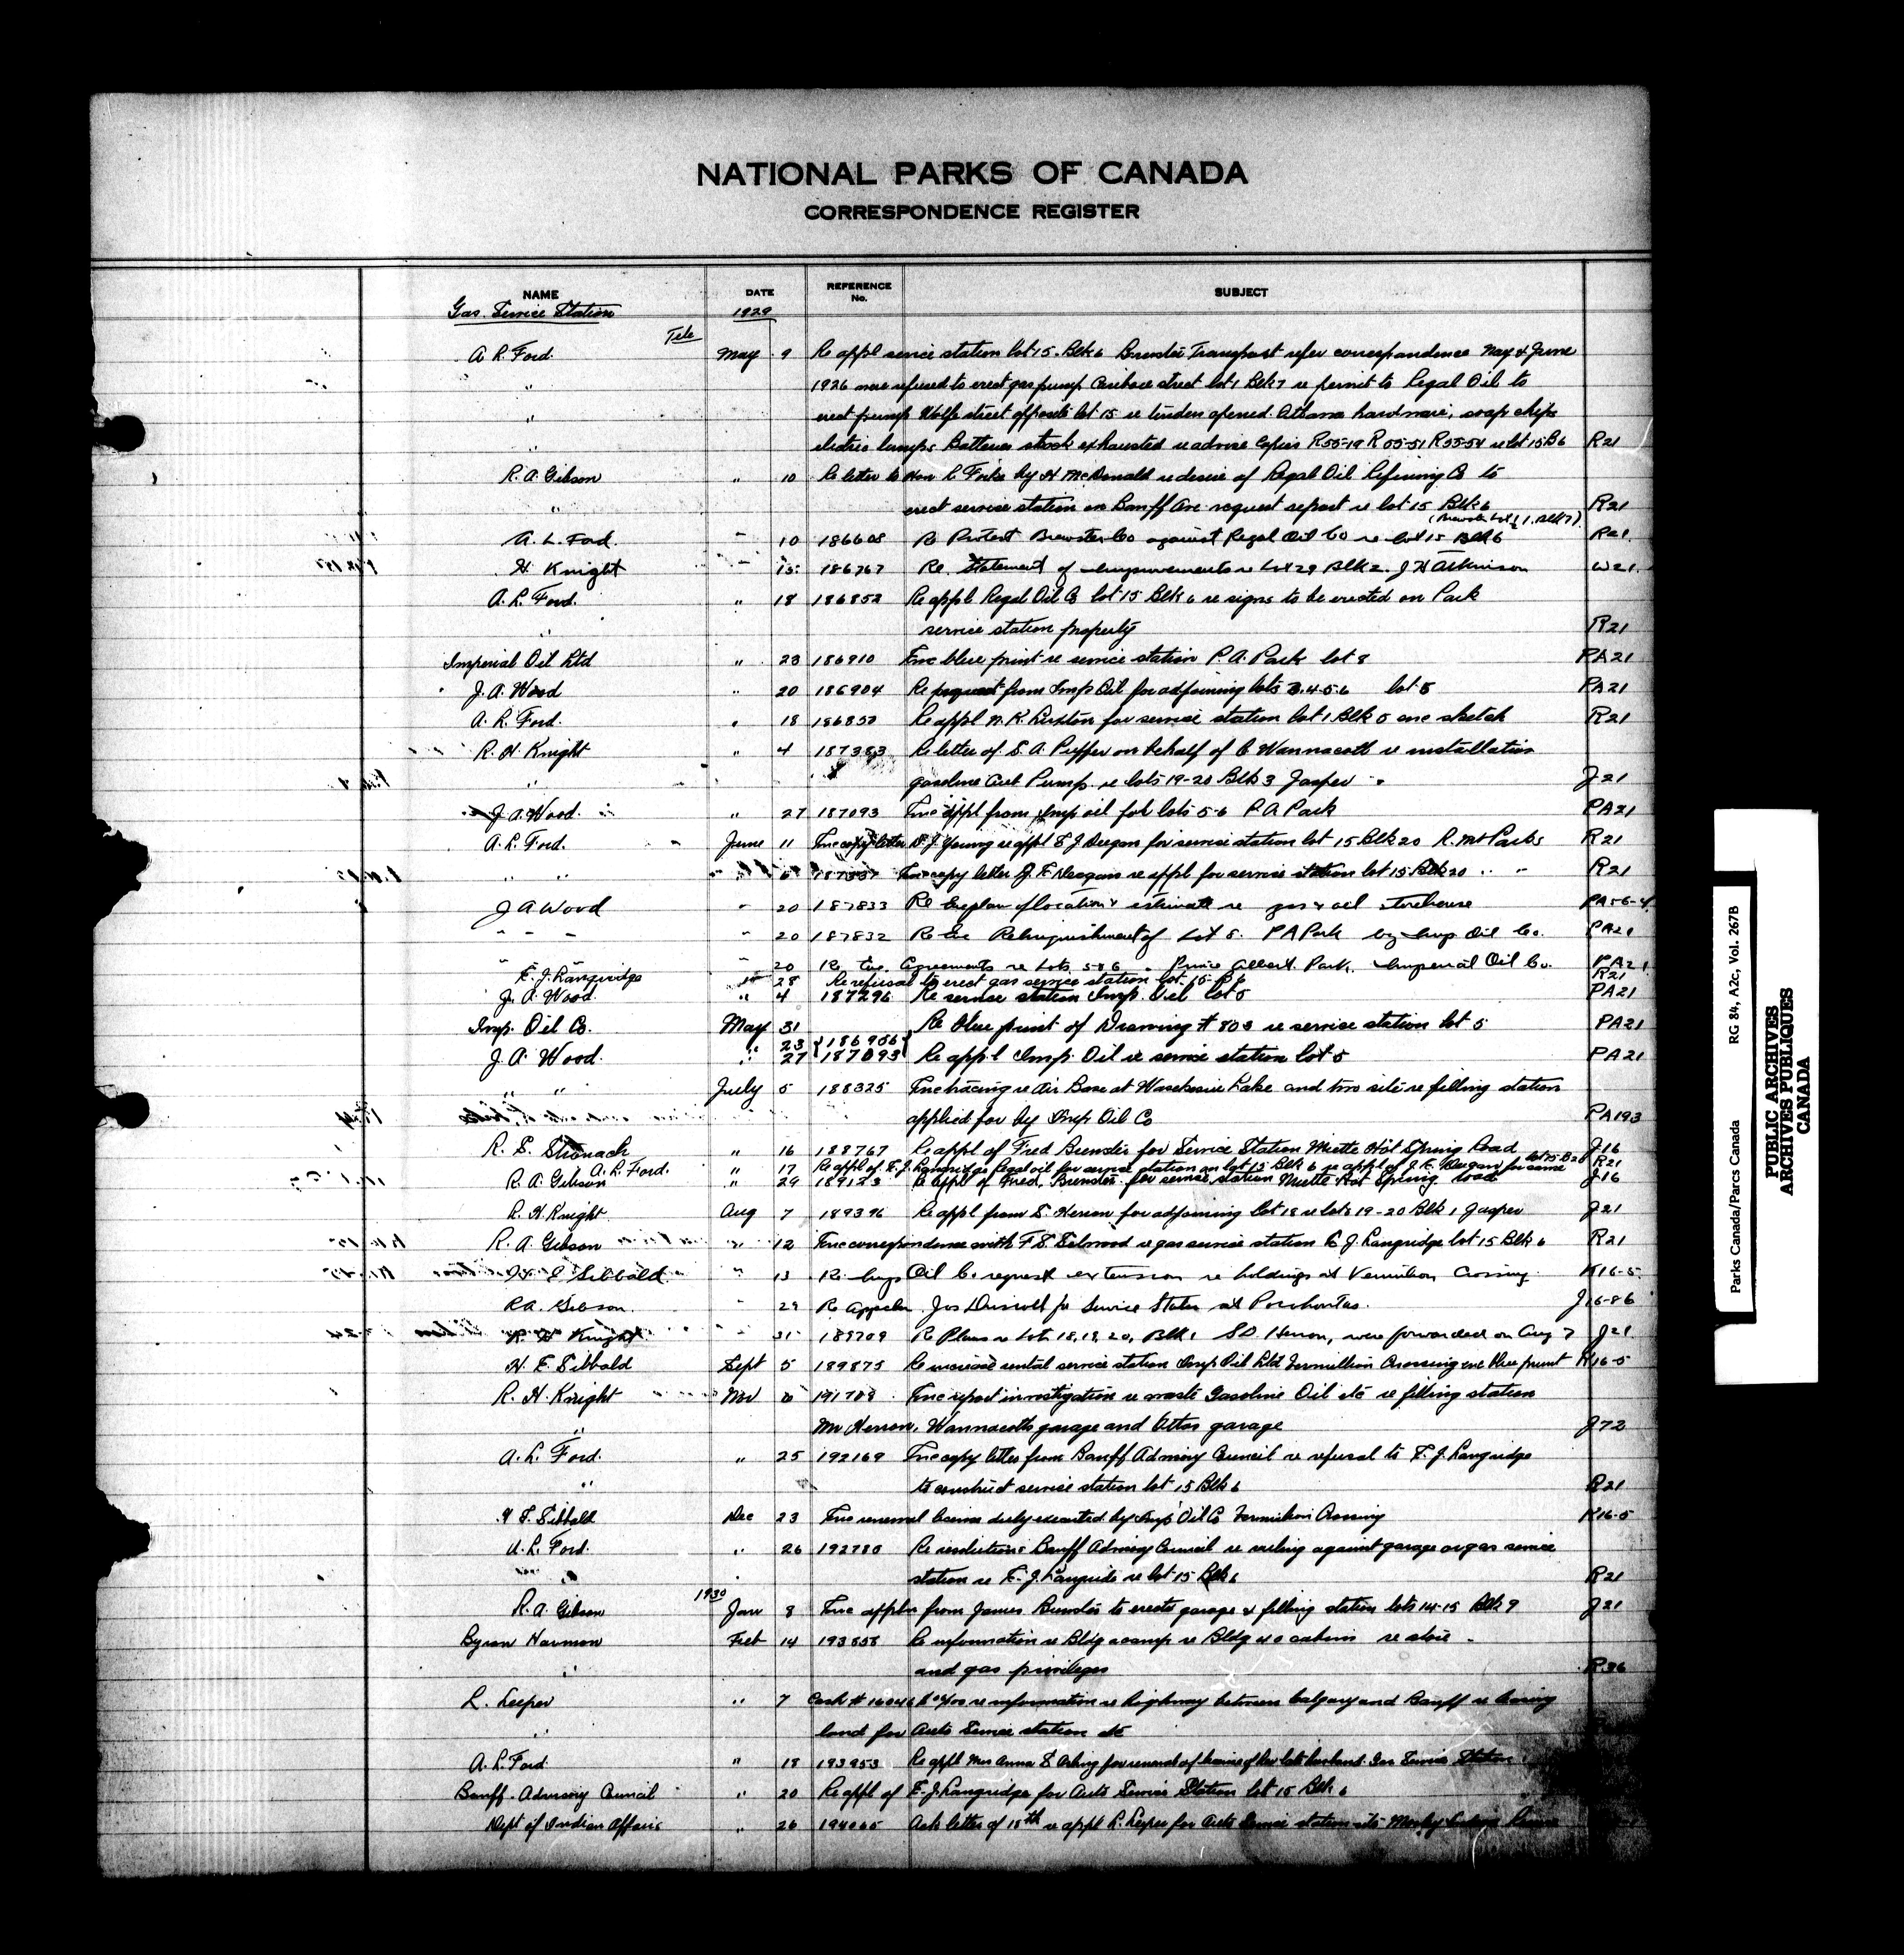 NATIONAL PARKS OF CANADA
CORRESPONDENCE REGISTER
NAME DATE REFERENCE No. SUBJECT
Gas Service Station 1929
Tele
A. L. Ford. May 9 Re appl service station lot 15. Blk 6 Brewster Transport refer correspondence May & June
" 1926 were refused to erect gas pump Caribou street lot 1 Blk 7 re permit to Regal Oil to
" erect pump Wolfe street opposite lot 15 re tenders opened. hardware, soap chips
" electric lamps Batteries stock exhausted re advise Copies R55-19 R55-51 R55-54 re lot 15 B6 R21
R. A. Gibson " 10 Re letter to Hon C by H McDonald re desire of Regal Oil Refining Co to
" erect service station on Banff Ave request report re lot 15 Blk 6 R21
A. L. Ford. " 10 186608 Re Protest Brewster Co against Regal Oil Co re lot 15 Blk 6 R21
H Knight " 15 186767 Re. Statement of improvements re Lot 29 Blk 2. J H Atkinson W21
A. L. Ford. " 18 186852 Re appl Regal Oil Co lot 15 Blk 6 re signs to be erected on Park
" service station property R21
Imperial Oil Ltd " 23 186910 Enc blue print re service station P. A. Park lot 8 PA21
J. A. Wood " 20 186904 Re request from Imp Oil for adjoining lots 3.4.5.6 lot 5 PA21
A. L. Ford. " 18 186850 Re appl N. K. Luxton for service station lot 1 Blk 5 enc sketch R21
R. H. Knight " 4 187383 Re letter of S. A. on behalf of C Wannacott re installation
" gasoline Pump re lots 19-20 Blk 3 Jasper J21
J. A. Wood. " 27 187093 Enc appl from Imp oil for lots 5-6 P A Park PA21
A. L. Ford. June 11 Enc copy letter D. J. Young re appl S J Deegan for service station lot 15 Blk 20 R. Mt Parks R21
" " 6 Enc copy letter J. F. Deegan re appl for service station lot 15 Blk 20 " " R21
J A Wood " 20 187833 Re of location & estimate re gas & oil storehouse PA56-4
" " " 20 187832 Re Enc Relinquishment of Lot 8. P A Park by Imp Oil Co. PA21
" 20 Re Enc. Agreements re Lots. 5 & 6. Prince Albert Park, Imperial Oil Co. PA21
E. J. Langridge " 28 Re refusal to erect gas service station lot 15 B 6 R21
J. A. Wood. " 4 187296 Re service station Imp. Oil lot 5 PA21
Imp. Oil Co. May 31 Re blue print of Drawing # 803 re service station lot 5 PA21
" 23 186956
J. A. Wood. " 27 187093 Re appl Imp. Oil re service station lot 5 PA21
" " July 5 188325 Enc tracing re Air Base at Waskesiu Lake and two site re filling station
applied for by Imp Oil Co PA193
R. S. Stronach " 16 188767 Re appl of Fred Brewster for Service Station Miette Hot Spring Road J16
A. L. Ford. " 17 Re appl. of E. J. Langridge Regal oil for service station on lot 15 Blk 6 re appl of J. F. Deegan for same lot 15 B 20 R21
R. A. Gibson " 29 189123 Re appl of Fred. Brewster for service station Miette Hot Spring road J16
R. H. Knight Aug 7 189396 Re appl from S. Herron for adjoining lot 18 re lots 19-20 Blk 1 Jasper J21
R. A. Gibson " 12 Enc correspondence with F. S. Selwood re gas service station E J. Langridge lot 15 Blk 6 R21
H. E. Sibbald " 13 Re. Imp Oil Co. request extension re holdings at Vermilion Crossing. K16-5
R A. Gibson. " 29 Re Appln. Jos Driscoll for Service Station at Pocahontas. J16-86
R H Knight " 31 189709 Re Plans re Lots 18, 19, 20, Blk 1 S D. Herron, were forwarded on Aug 7 J21
H. E. Sibbald Sept 5 189875 Re increase rental service station Imp Oil Ltd Vermillion Crossing enc blue print K16-5
R. H. Knight Nov 6 191709 Enc report investigation re waste Gasoline Oil etc re filling station
" Mr Herron, Wannacotts garage and Ottos garage J72
A. L. Ford. " 25 192169 Enc copy letter from Banff Advisory Council re refusal to E. J. Langridge
" to construct service station lot 15 Blk 6 R21
H E. Sibbald Dec 23 Enc renewal license duly executed by Imp Oil Co Vermilion Crossing K16-5
A. L. Ford. " 26 192780 Re resolutions Banff Advisory Council re ruling against garage or gas service
" station re E. J. Langridge re lot 15 Blk 6 R21
1930
R. A. Gibson Jan 8 Enc appln from James Brewster to erect garage & filling station lots 14-15 Blk 9 J21
Byron Harmon Feb 14 193858 Re information re Bldg a camp re Bldg cabins re store
" and gas privileges R36
R. Leeper " 7 Cash # 16046 re information re highway between Calgary and Banff re leasing
" land for Auto Service station etc
A. L. Ford. " 18 193953 Re appl Mrs Anna S. for renewal of license of her late husband Gas Service Station
Banff. Advisory Council " 20 Re appl of E. J. Langridge for Auto Service Station lot 15 Blk 6
Dept of Indian Affairs " 26 194065 Ack letter of 18th re appl R. Leeper for Auto Service station site Morley Indian
PUBLIC ARCHIVES
ARCHIVES PUBLIQUES
CANADA
Parks Canada/Parcs Canada RG 84, A2c, Vol. 267B